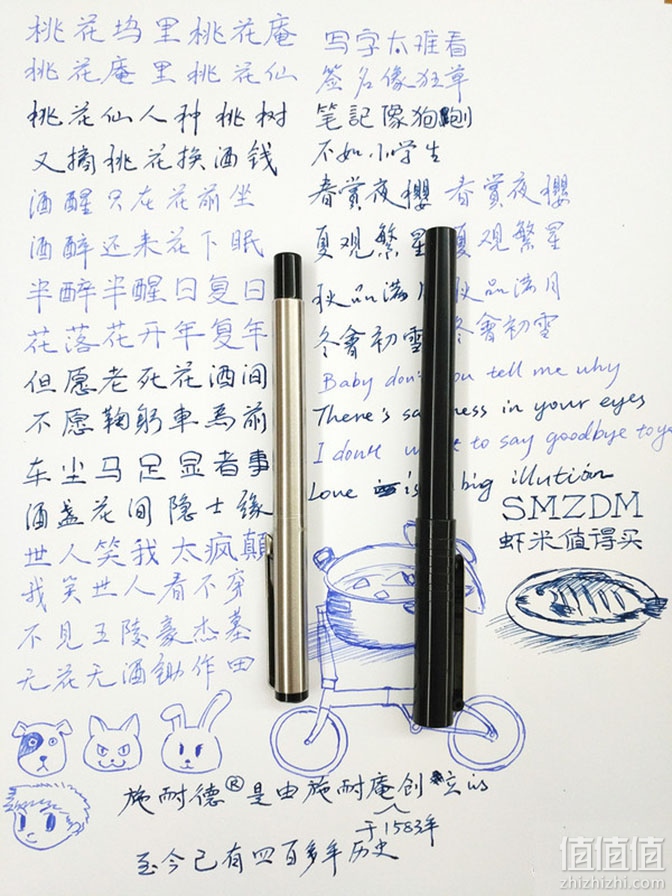 桃花坞里桃花庵
桃花庵里桃花仙
桃花仙人种桃树
又摘桃花换酒钱
酒醒只在花前坐
酒醉还来花下眠
半醉半醒日复日
花落花开年复年
但愿老死花酒间
不愿鞠躬車馬前
车尘马足显者事
酒盏花间隐士缘
世人笑我太疯颠
我笑世人看不穿
不见五陵豪杰墓
无花无酒锄作田
写字太难看
签名像狂草
笔記像狗刨
不如小学生
春賞夜櫻 春賞夜櫻
夏观繁星 夏观繁星
秋品满月 秋品满月
冬會初雪 冬會初雪
Baby tell me why
There's in your eyes
I don't to say goodbye to
Love is big illution
SMZDM
虾米值得买
施耐德®是由施耐庵创立
于1583年
至今已有四百多年历史
值值值
zhizhizhi.com